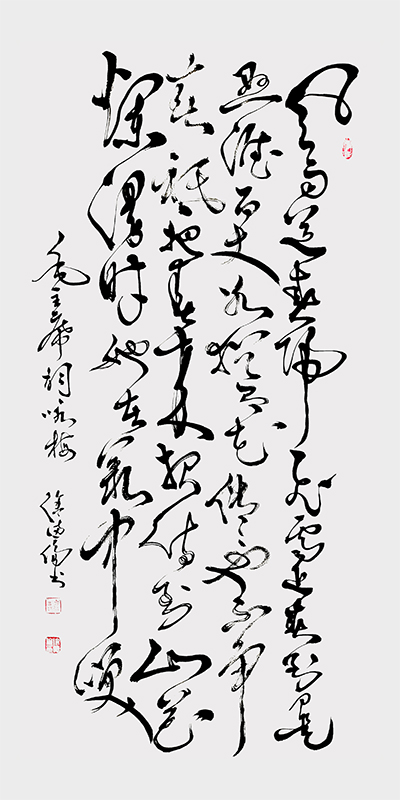 风雨送春归飞雪迎春到是
悬崖百丈冰犹有花俏俏也不争
春祇把春来报待到山花
烂漫时她在丛中笑
毛主席词咏梅
书